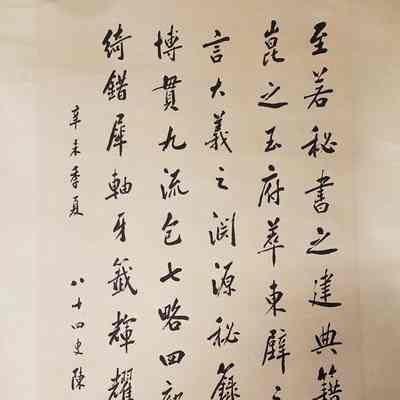 至若秘書之建典籍
崑之玉府萃東壁之
言大義之淵源秘籙
博貫九流包七略四部
綺錯犀軸牙籤輝耀
辛未季夏
八十四叟陳